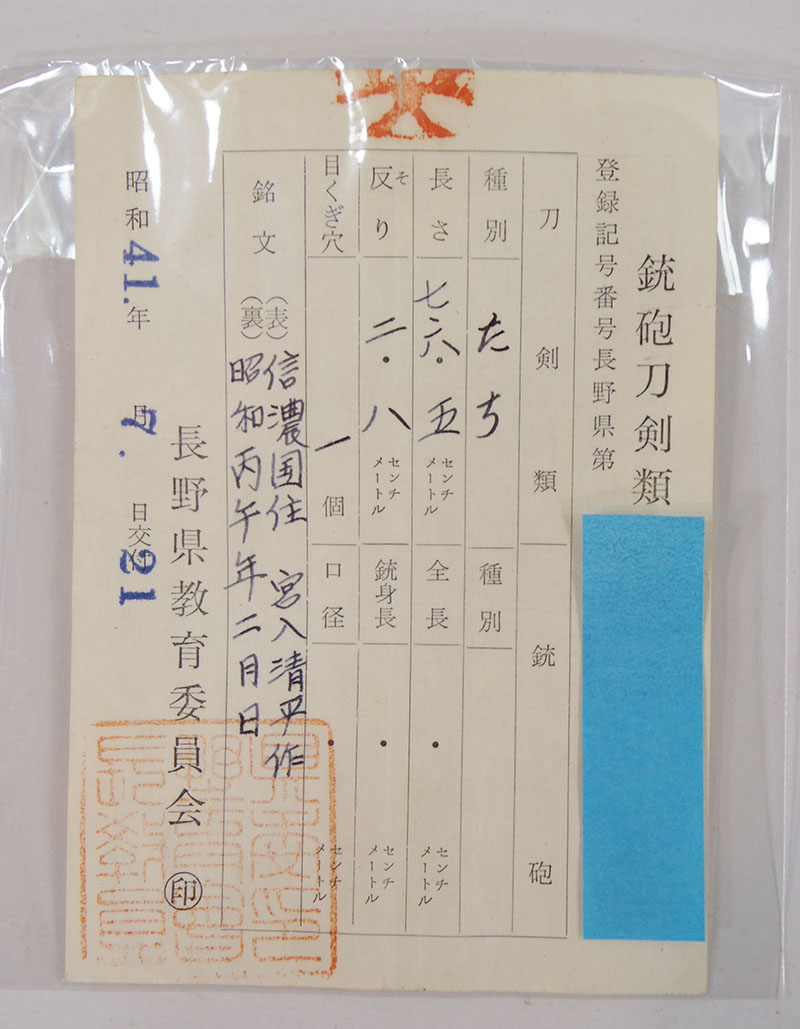 銃砲刀剣類
登録記号番号長野県第
刀剣類
銃砲
種別 たち
種別
長さ 七六・五 センチメートル
全長 ・ センチメートル
反り そ 二・八 センチメートル
銃身長 ・ センチメートル
目くぎ穴 一個
口径 ・ センチメートル
銘文 (表) 信濃国住 宮入清平作
(裏) 昭和丙午年二月日
長野県教育委員会 印
昭和41.年 7.月 21日交